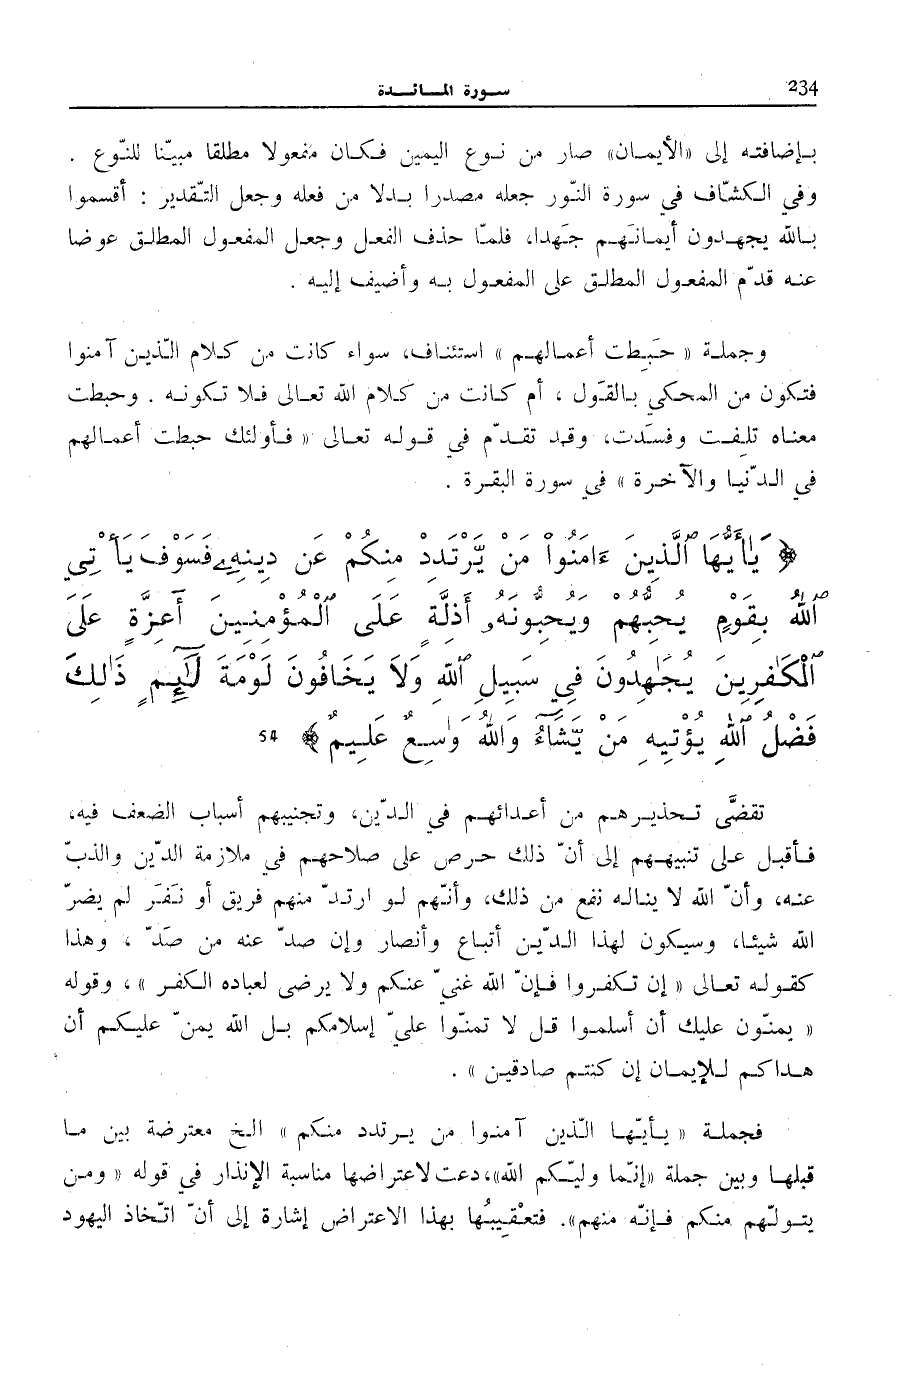 234
سورة المائدة
بإضافته إلى «الأيمان» صار من نوع اليمين فكان مفعولا مطلقا مبيّنا للنّوع .
وفي الكشّاف في سورة النّور جعله مصدرا بدلا من فعله وجعل التّقدير : أقسموا
بالله يجهدون أيمانَهم جَهدا، فلمّا حذف الفعل وجعل المفعول المطلق عوضا
عنه قدّم المفعول المطلق على المفعول به وأضيف إليه .
وجملة « حَبِطت أعمالهم » استئناف، سواء كانت من كلام الّذين آمنوا
فتكون من المحكي بالقول ، أم كانت من كلام الله تعالى فلا تكونه . وحبطت
معناه تلِفت وفسَدت، وقد تقدّم في قوله تعالى « فأولئك حبطت أعمالهم
في الدّنيا والآخرة » في سورة البقرة .
﴿ يَٰأَيُّهَا ٱلَّذِينَ ءَامَنُواْ مَنْ يَّرْتَدِدْ مِنكُمْ عَن دِينِهِۦ فَسَوْفَ يَأْتِي
ٱللَّهُ بِقَوْمٍ يُحِبُّهُمْ وَيُحِبُّونَهُۥ أَذِلَّةٍ عَلَى ٱلْمُؤْمِنِينَ أَعِزَّةٍ عَلَى
ٱلْكَٰفِرِينَ يُجَٰهِدُونَ فِي سَبِيلِ ٱللَّهِ وَلَا يَخَافُونَ لَوْمَةَ لَآئِمٍ ذَٰلِكَ
فَضْلُ ٱللَّهِ يُؤْتِيهِ مَنْ يَّشَآءُ وَٱللَّهُ وَٰسِعٌ عَلِيمٌ ﴾ 54
تقضَّى تحذيرهم من أعدائهم في الدّين، وتجنيبهم أسباب الضعف فيه،
فأقبل على تنبيههم إلى أنّ ذلك حرص على صلاحهم في ملازمة الدّين والذبّ
عنه، وأنّ الله لا يناله نفع من ذلك، وأنّهم لو ارتدّ منهم فريق أو نَفَر لم يضرّ
الله شيئا، وسيكون لهذا الدّين أتباع وأنصار وإن صدّ عنه من صَدّ ، وهذا
كقوله تعالى « إن تكفروا فإنّ الله غنيّ عنكم ولا يرضى لعباده الكفر » ، وقوله
« يمنّون عليك أن أسلموا قل لا تمنّوا عليّ إسلامكم بل الله يمنّ عليكم أن
هداكم للإيمان إن كنتم صادقين » .
فجملة « يأيّها الّذين آمنوا من يرتدد منكم » الخ معترضة بين ما
قبلها وبين جملة «إنّما وليّكم الله»، دعت لاعتراضها مناسبة الإنذار في قوله « ومن
يتولّهم منكم فإنّه منهم». فتعْقيبُها بهذا الاعتراض إشارة إلى أنّ اتّخاذ اليهود